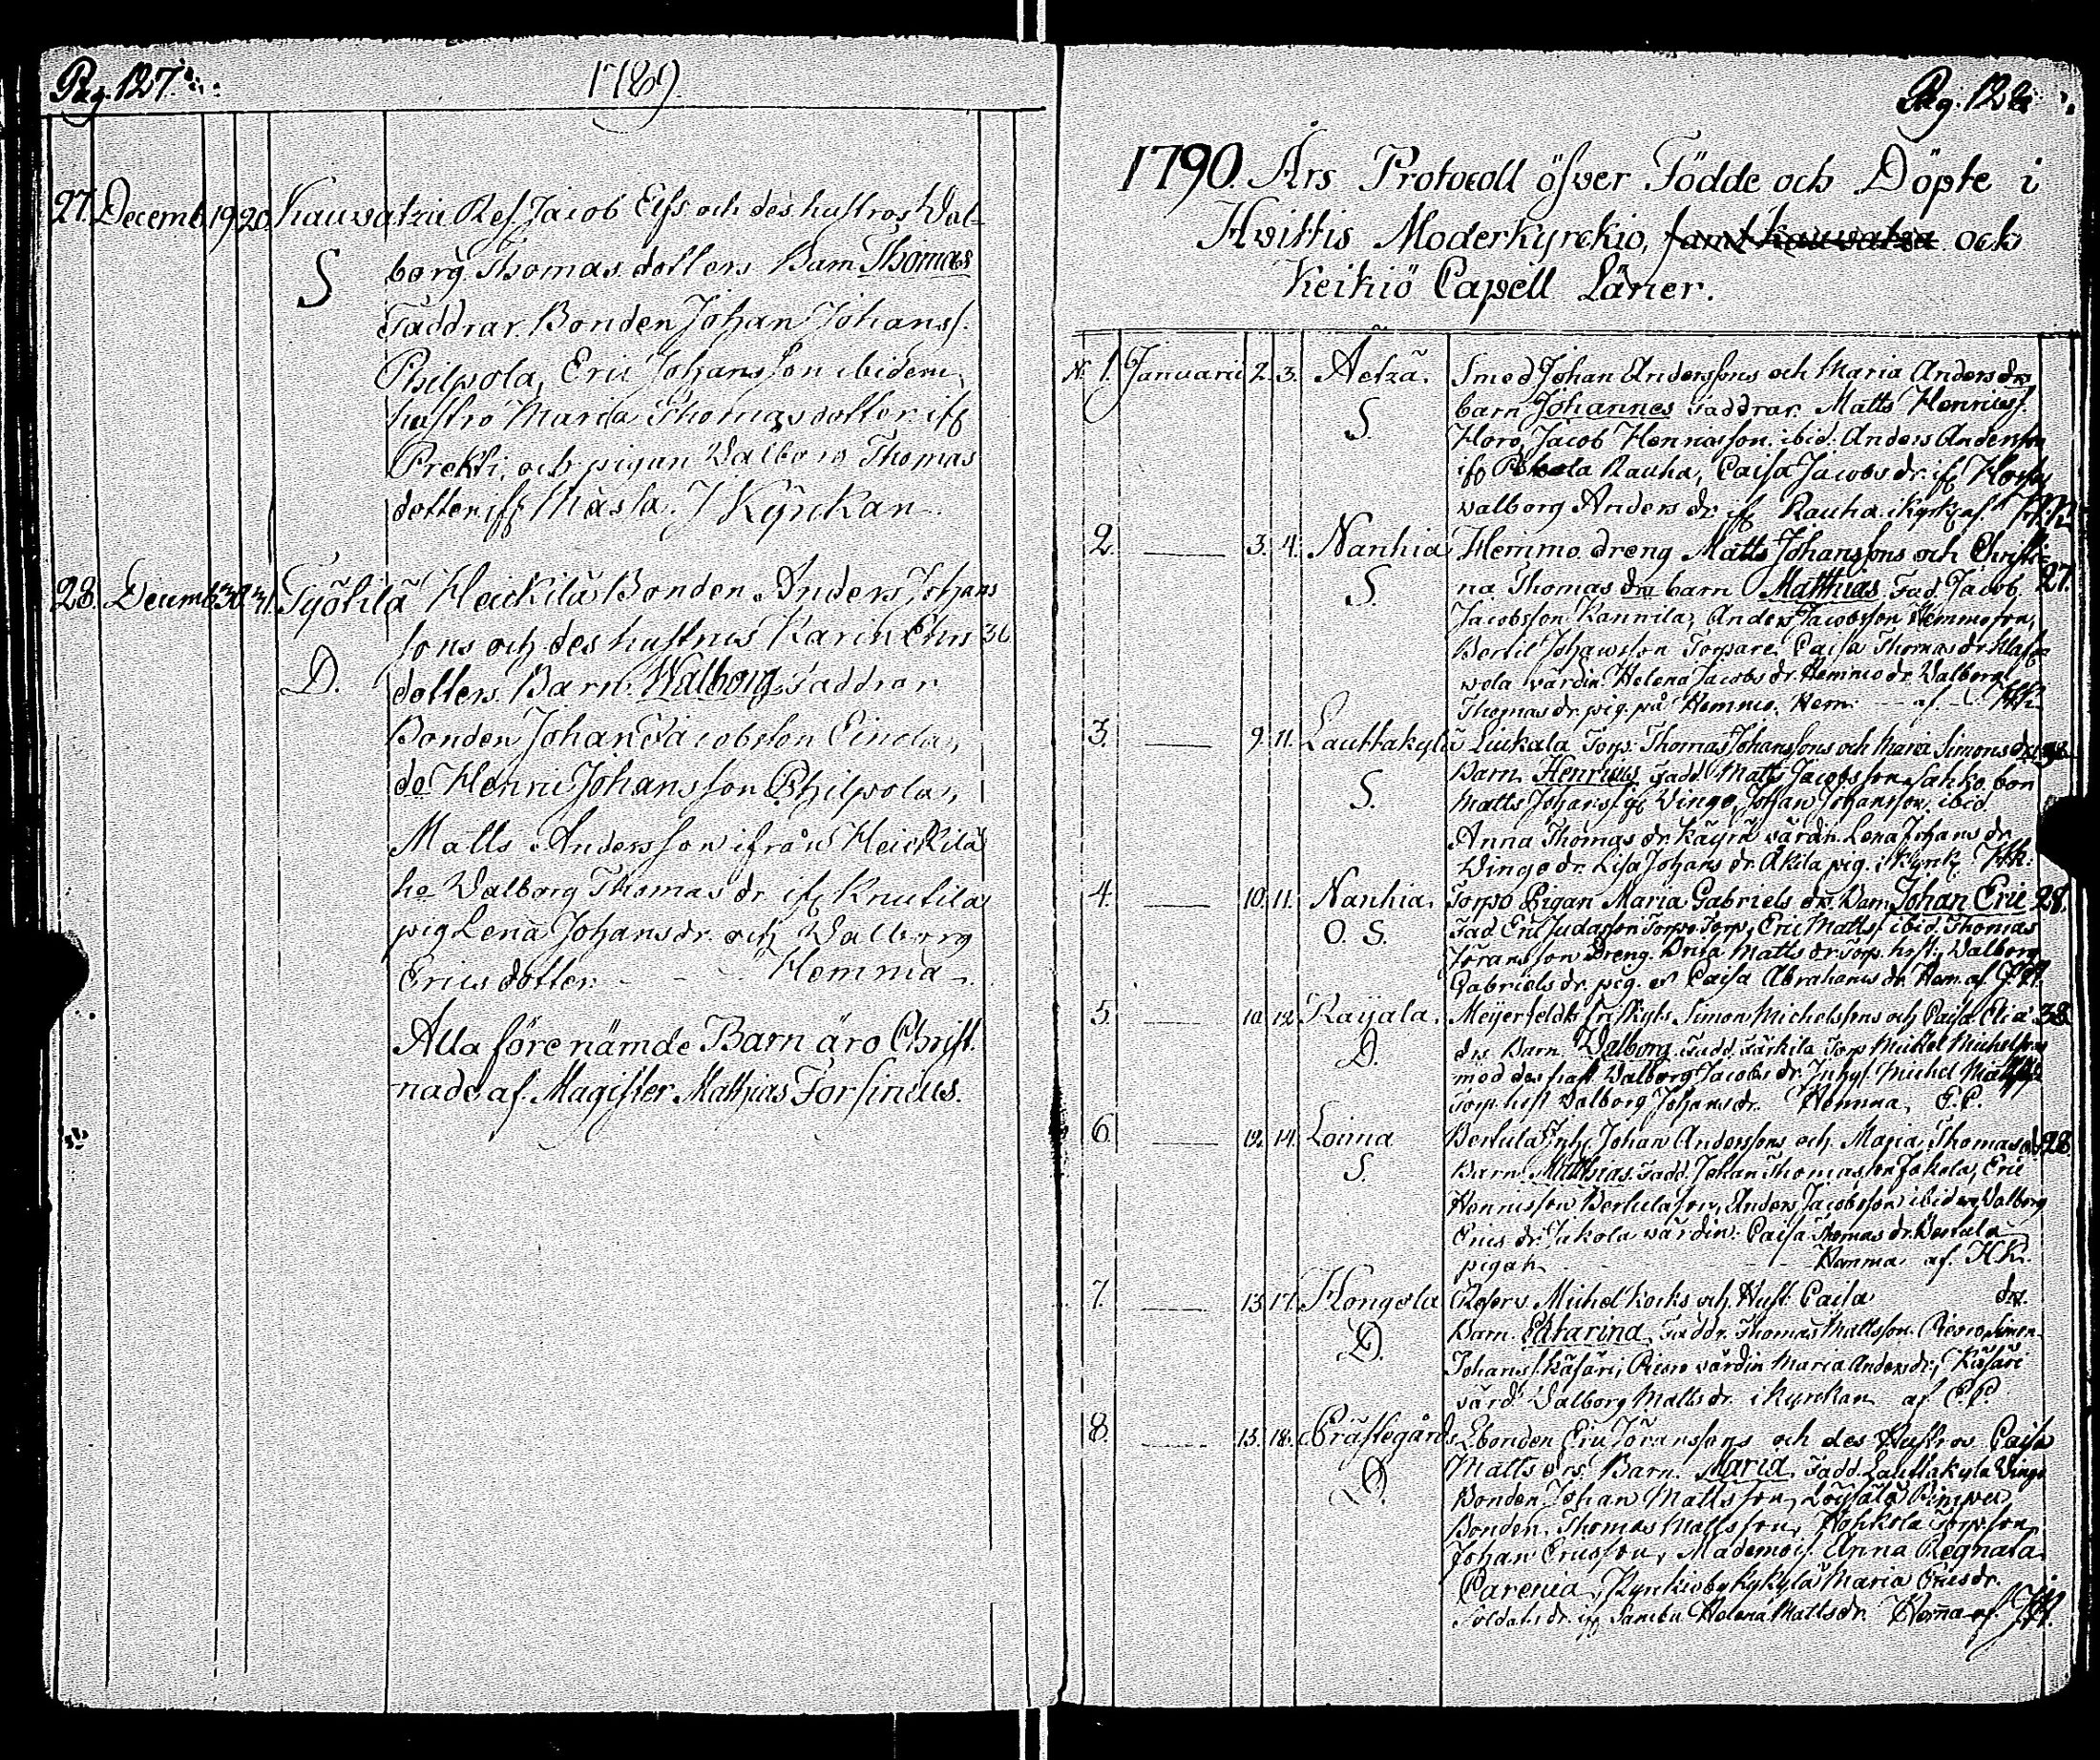 Pag. 127.
1789.
27. Decemb. 19 20. Kauvatza Res. Jacob Elfs och des hustros Wal-
S borg Thomas dotters Barn Thomas
Faddrar. Bonden Johan Johanss.
Philpola, Eric Johansson ibidem,
hustro Maria Thomasdotter if
Prekti, och pigan Valborg Thomas
dotter if Masla. J Kyrckan.
28. Decemb. 30. 31. Työkilä Heickilä Bonden Anders Johans
sons och des hustrus Karin Erics 36
D. dotters Barn Walborg Faddrar
Bonden Johan Jacobsson Einola,
do Henric Johansson Philpola,
Matts Andersson ifrån Heickilä
ho Valborg Thomas dr if Knutila
pig Lena Johansdr. och Valborg
Ericsdotter. - - Hemma.
Alla förenämde Barn äro Christ
nade af Magister Mathias Forsinius.
Pag. 128.
1790. Års Protocoll öfver Födde och Döpte i
Hvittis Moderkyrckio, samt Kauvatza och
Keikiö Capell Läner.
N. 1. Januarii 2. 3. Aetzä. Smed Johan Anderssons och Maria Anders drs
S. barn Johannes Faddrar. Matts Henricss.
Horo, Jacob Henricsson ibid. Anders Andersson
if Rauha, Caisa Jacobs dr. if
Valborg Anders dr if Rauha i Kyrk af
2. 3. 4. Nanhia Hemmo dreng Matts Johanssons och Christi-
S. na Thomas drs barn Matthias. Fad. Jacob 27.
Jacobsson Kannila, Anders Jacobsson Hemmo son,
Bertil Johansson Torpare. Caisa Thomas dr
wola värdin. Helena Jacobs dr. Hemmo dr. Valborg
Thomas dr. pig. på Hemmo. Hem. - af
3. 9. 11. Lauttakylä Liukala Torp. Thomas Johanssons och Maria Simons drs
S. Barn Henricus Fadd. Matts Jacobsson Sahko bon
Matts Johanss if Vingo, Johan Johansson, ibid
Anna Thomas dr. Käyrä värdin. Lena Johans dr
Vingo dr. Lisa Johans dr. Akila pig. i Kyrck.
4. 10. 11. Nanhia. Torpo Pigan Maria Gabriels drs. Barn Johan Eric 28.
O. S. Fad. Eric Judasson Torpo Torp, Eric Matts ibid. Thomas
Jöransson Dreng. Anna Matts dr. Torp. hust., Valborg
Gabriels dr. pig. o Caisa Abrahams dr. Hem. af
5. 10. 12. Raijala. Meyerfeldts Simon Michelssons och Caisa Elia 38
D. drs Barn. Valborg. Fadd. Särkila Torp Mickel Michelsson
med des hust. Valborg Jacobs dr. Inhys. Michel
Torp. hust Valborg Johans dr. Hemma, E. P.
6. 12. 14. Loima Bertula Inh. Johan Anderssons och Maria Thomas drs 28
S. Barn. Matthias. Fadd. Johan Thomasson Jakola, Eric
Henricsson Bertula son, Anders Jacobsson ibidem, Valborg
Erics dr. Jakola värdin. Caisa Thomas dr. Bertula
pigan - - Hemma af. H.K.
7. 13. 17. Hongola Reserv. Michel Kocks och Hust. Caisa drs.
D. Barn. Catarina, Faddr. Thomas Mattsson. Rieso Simon
Johanss. Käsäri, Rieso värdin Maria Andersdr, Käsäri
värd. Valborg Matts dr. i Kyrckan af E. P.
8. 15. 18. Prästegårds Lbonden Eric Jöranssons och des Hustros Caisa
D. Matts drs. Barn. Maria. Fadd. Lauttakylä Vingo
Bonden Johan Mattsson,
Bonden. Thomas Mattsson, Hohkola Torp. son
Johan Ericsson, Mademois. Anna Regnata
Carenia, Kyrckiobykylä Maria Ericsdr.
Soldats dr. if Sambu Helena Mattsdr. Hema af